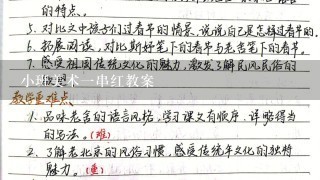 的特点。
5. 对比文中孩子们过春节的情景,说说自己是怎样过春节的。
6. 拓展阅读,对比斯好笔下的春节与老舍笔下的春节。
7. 感受祖国传统文化的魅力,激发了解民风民俗的
小班美术一串红教案
教学重难点
1. 品味老舍的语言风格,学习课文有顺序、详略得当
的写法。(难)
2. 了解老北京的风俗习惯,感受传统年文化的独特
魅力。(重)